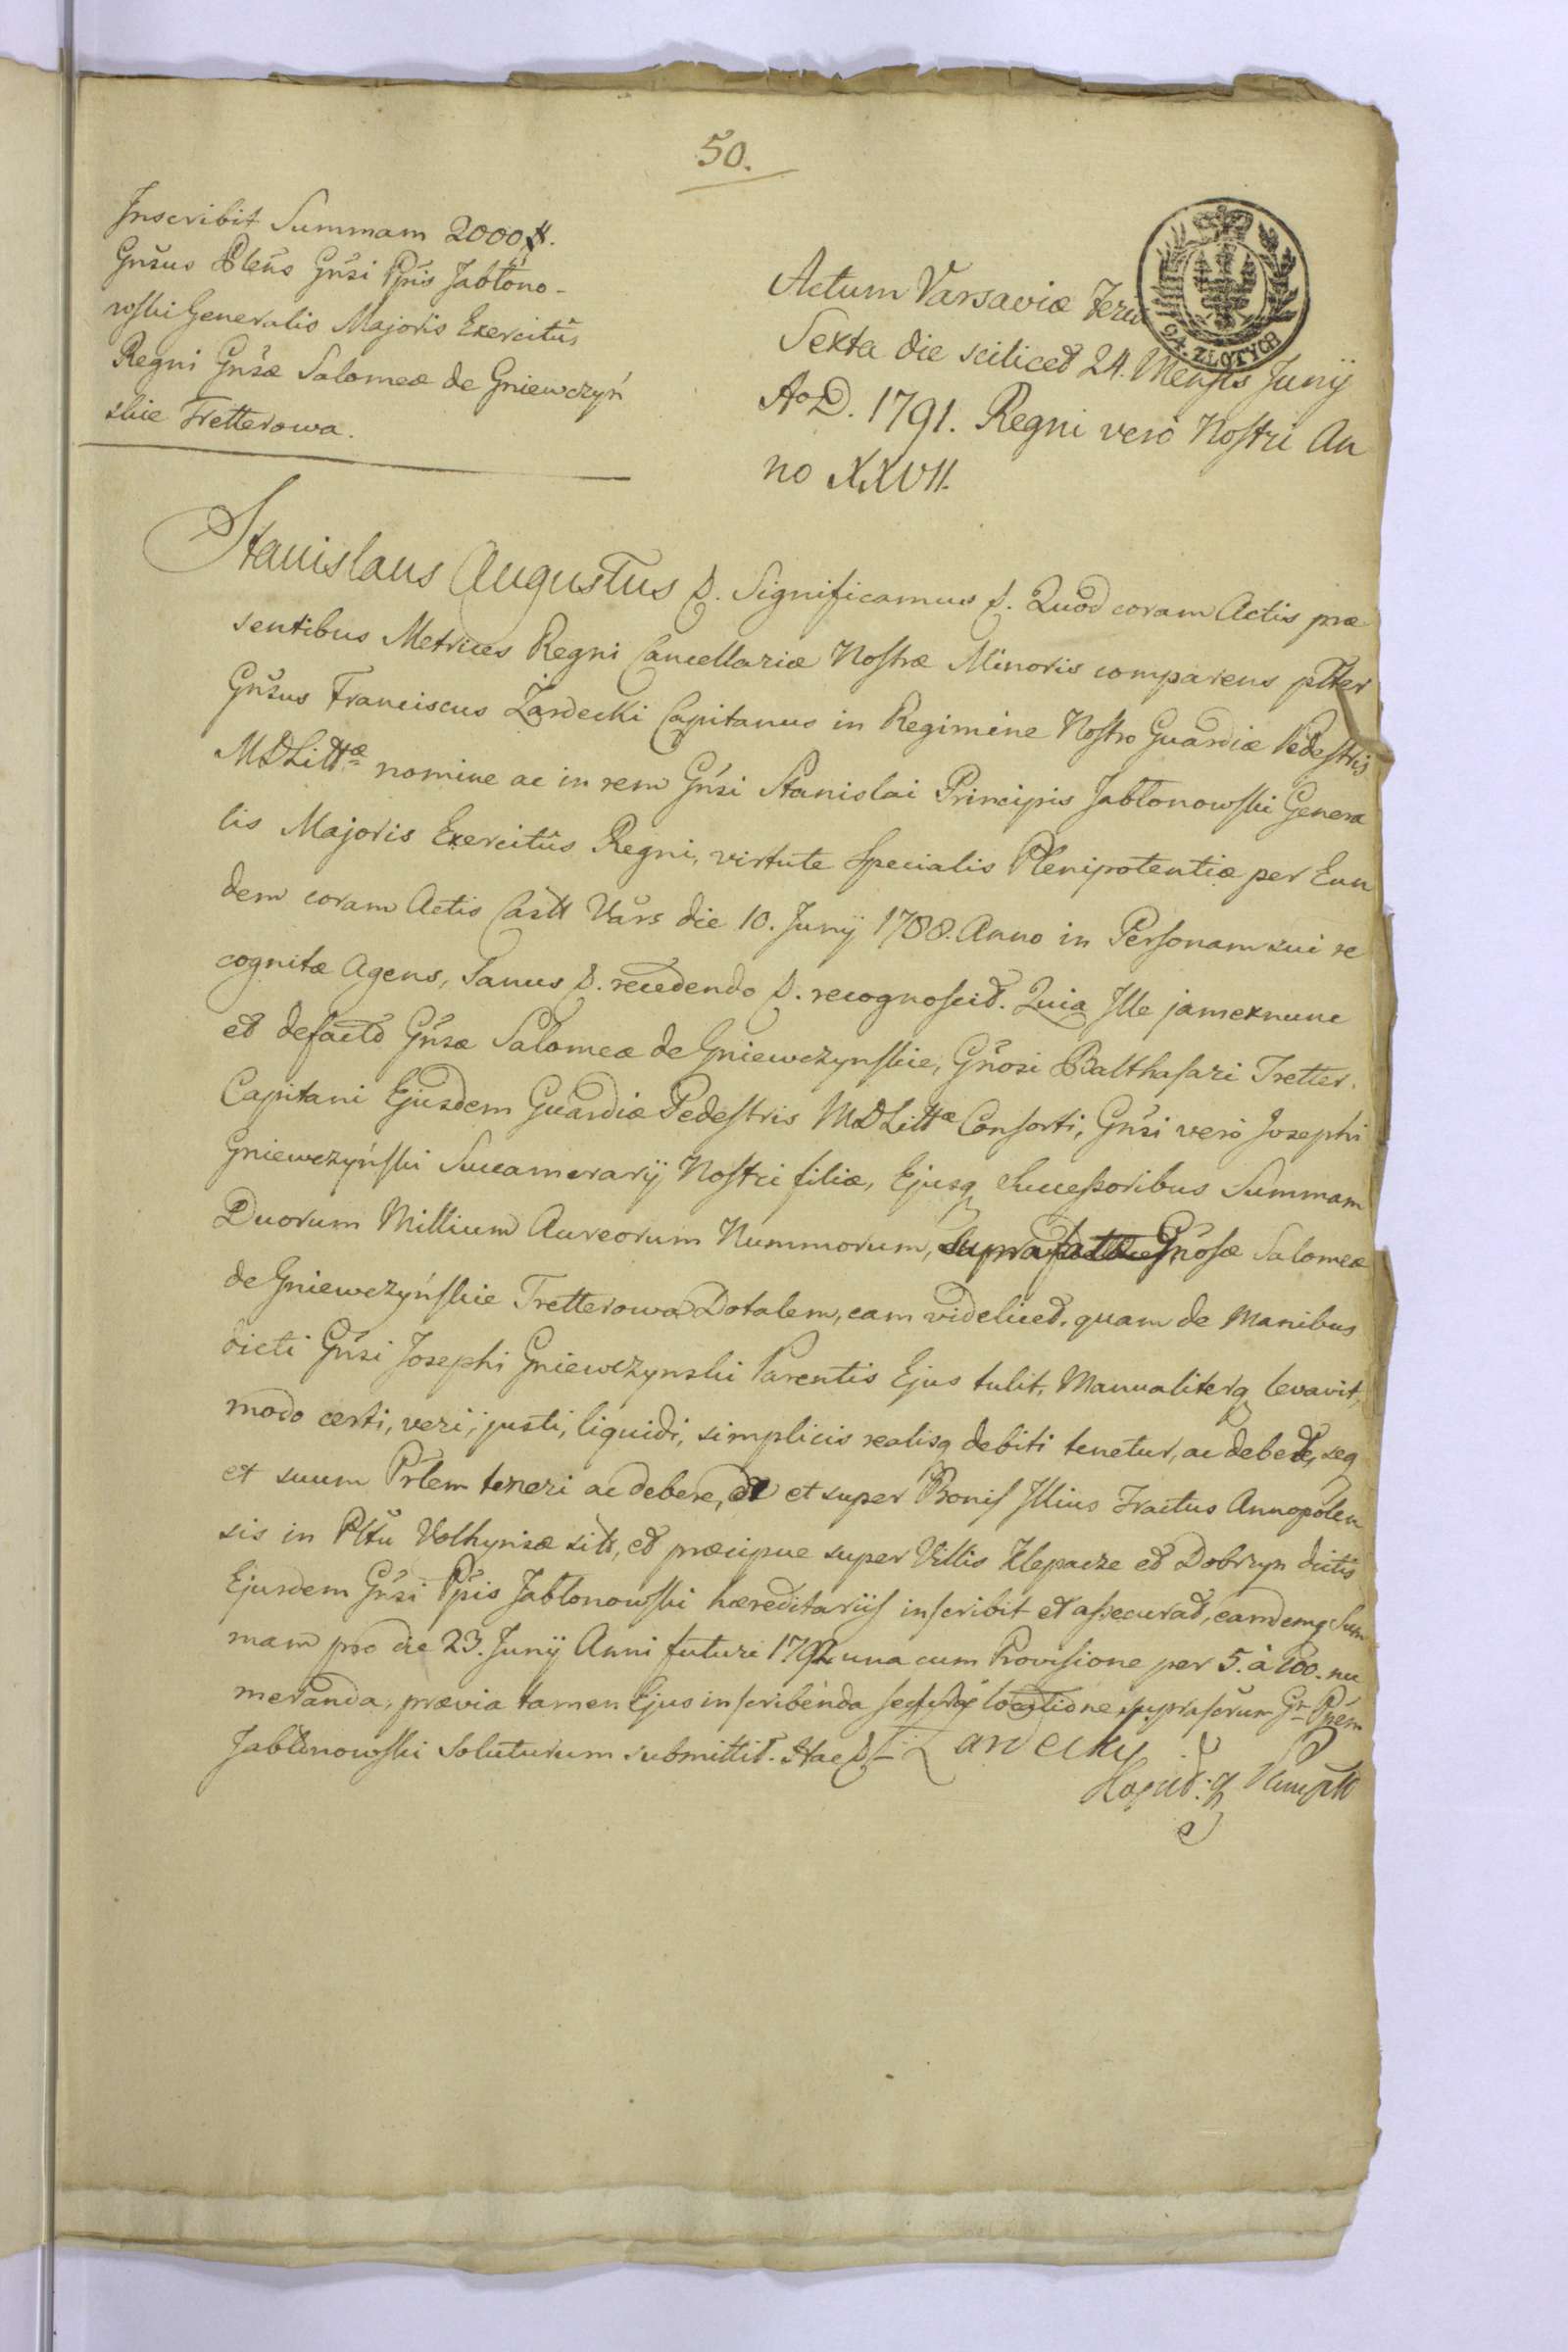 50.
Inscribit Summam 2000 #.
Gnr̃sus Plen̄s Gnr̃si Ppis Jabłono-
wski Generalis Majoris Exercitûs
Regni Gnr̃sæ Salomeæ de Gniewczyń
skie Tretterowa.
Actum Varsaviæ Feria
Sexta die scilicet 24. Mensis Junÿ
AoD. 1791. Regni verò Nostri An
no XXVII.
24. ZŁOTYCH
Stanislaus Augustus &. Significamus &. Quod coram Actis præ
sentibus Metrices Regni Cancellariæ Nostræ Minoris comparens pltter
Gnr̃sus Franciscus Żardecki Capitanus in Regimine Nostro Guardiæ Pedestris
MDLittæ nomine ac in rem Gnr̃si Stanislai Principis Jabłonowski Genera
lis Majoris Exercitûs Regni, virtute specialis Plenipotentiæ per Eun
dem coram Actis Castt Vars die 10. Junÿ 1788. Anno in Personam sui re
cognitæ Agens, Sanus &. recedendo &. recognoscit. Quia Ille jamexnunc
et defacto Gnr̃sæ Salomeæ de Gniewczynskie, Gnr̃osi Balthasari Tretter
Capitani Ejusdem Guardiæ Pedestris MDLittæ Consorti, Gnr̃si verò Josephi
Gniewczyński Succamerarÿ Nostri filiæ, Ejusq Successoribus Summam
Duorum Millium Aureorum Nummorum, supra fattæ Gnr̃osæ Salomeæ
de Gniewczyńskie Tretterowa Dotalem, eam videlicet, quam de Manibus
dicti Gnr̃si Josephi Gniewczynski Parentis Ejus tulit, Manualiterq levavit,
modo certi, veri, justi, liquidi, simplicis realisq debiti tenetur, ac debet, seq
et suum Prlem teneri ac debere, et super Bonis Illius Tractus Annopolen
sis in Plttu Volhyniæ sitt, et præcipue super Villis Klepacze et Dobryn dictis
Ejusdem Gnr̃si Ppis Jabłonowski hæreditariis inscribit et assecurat, eandemq Sum
mam pro die 23. Junÿ Anni futuri 1792 una cum Provisione per 5. à 100. nu
meranda, prævia tamen Ejus inscribenda locatione suprascr̃um Gr Ppem
Jabłonowski soluturum submittit. Hac &
Żardecky
Kapit: q Plenip̃tt